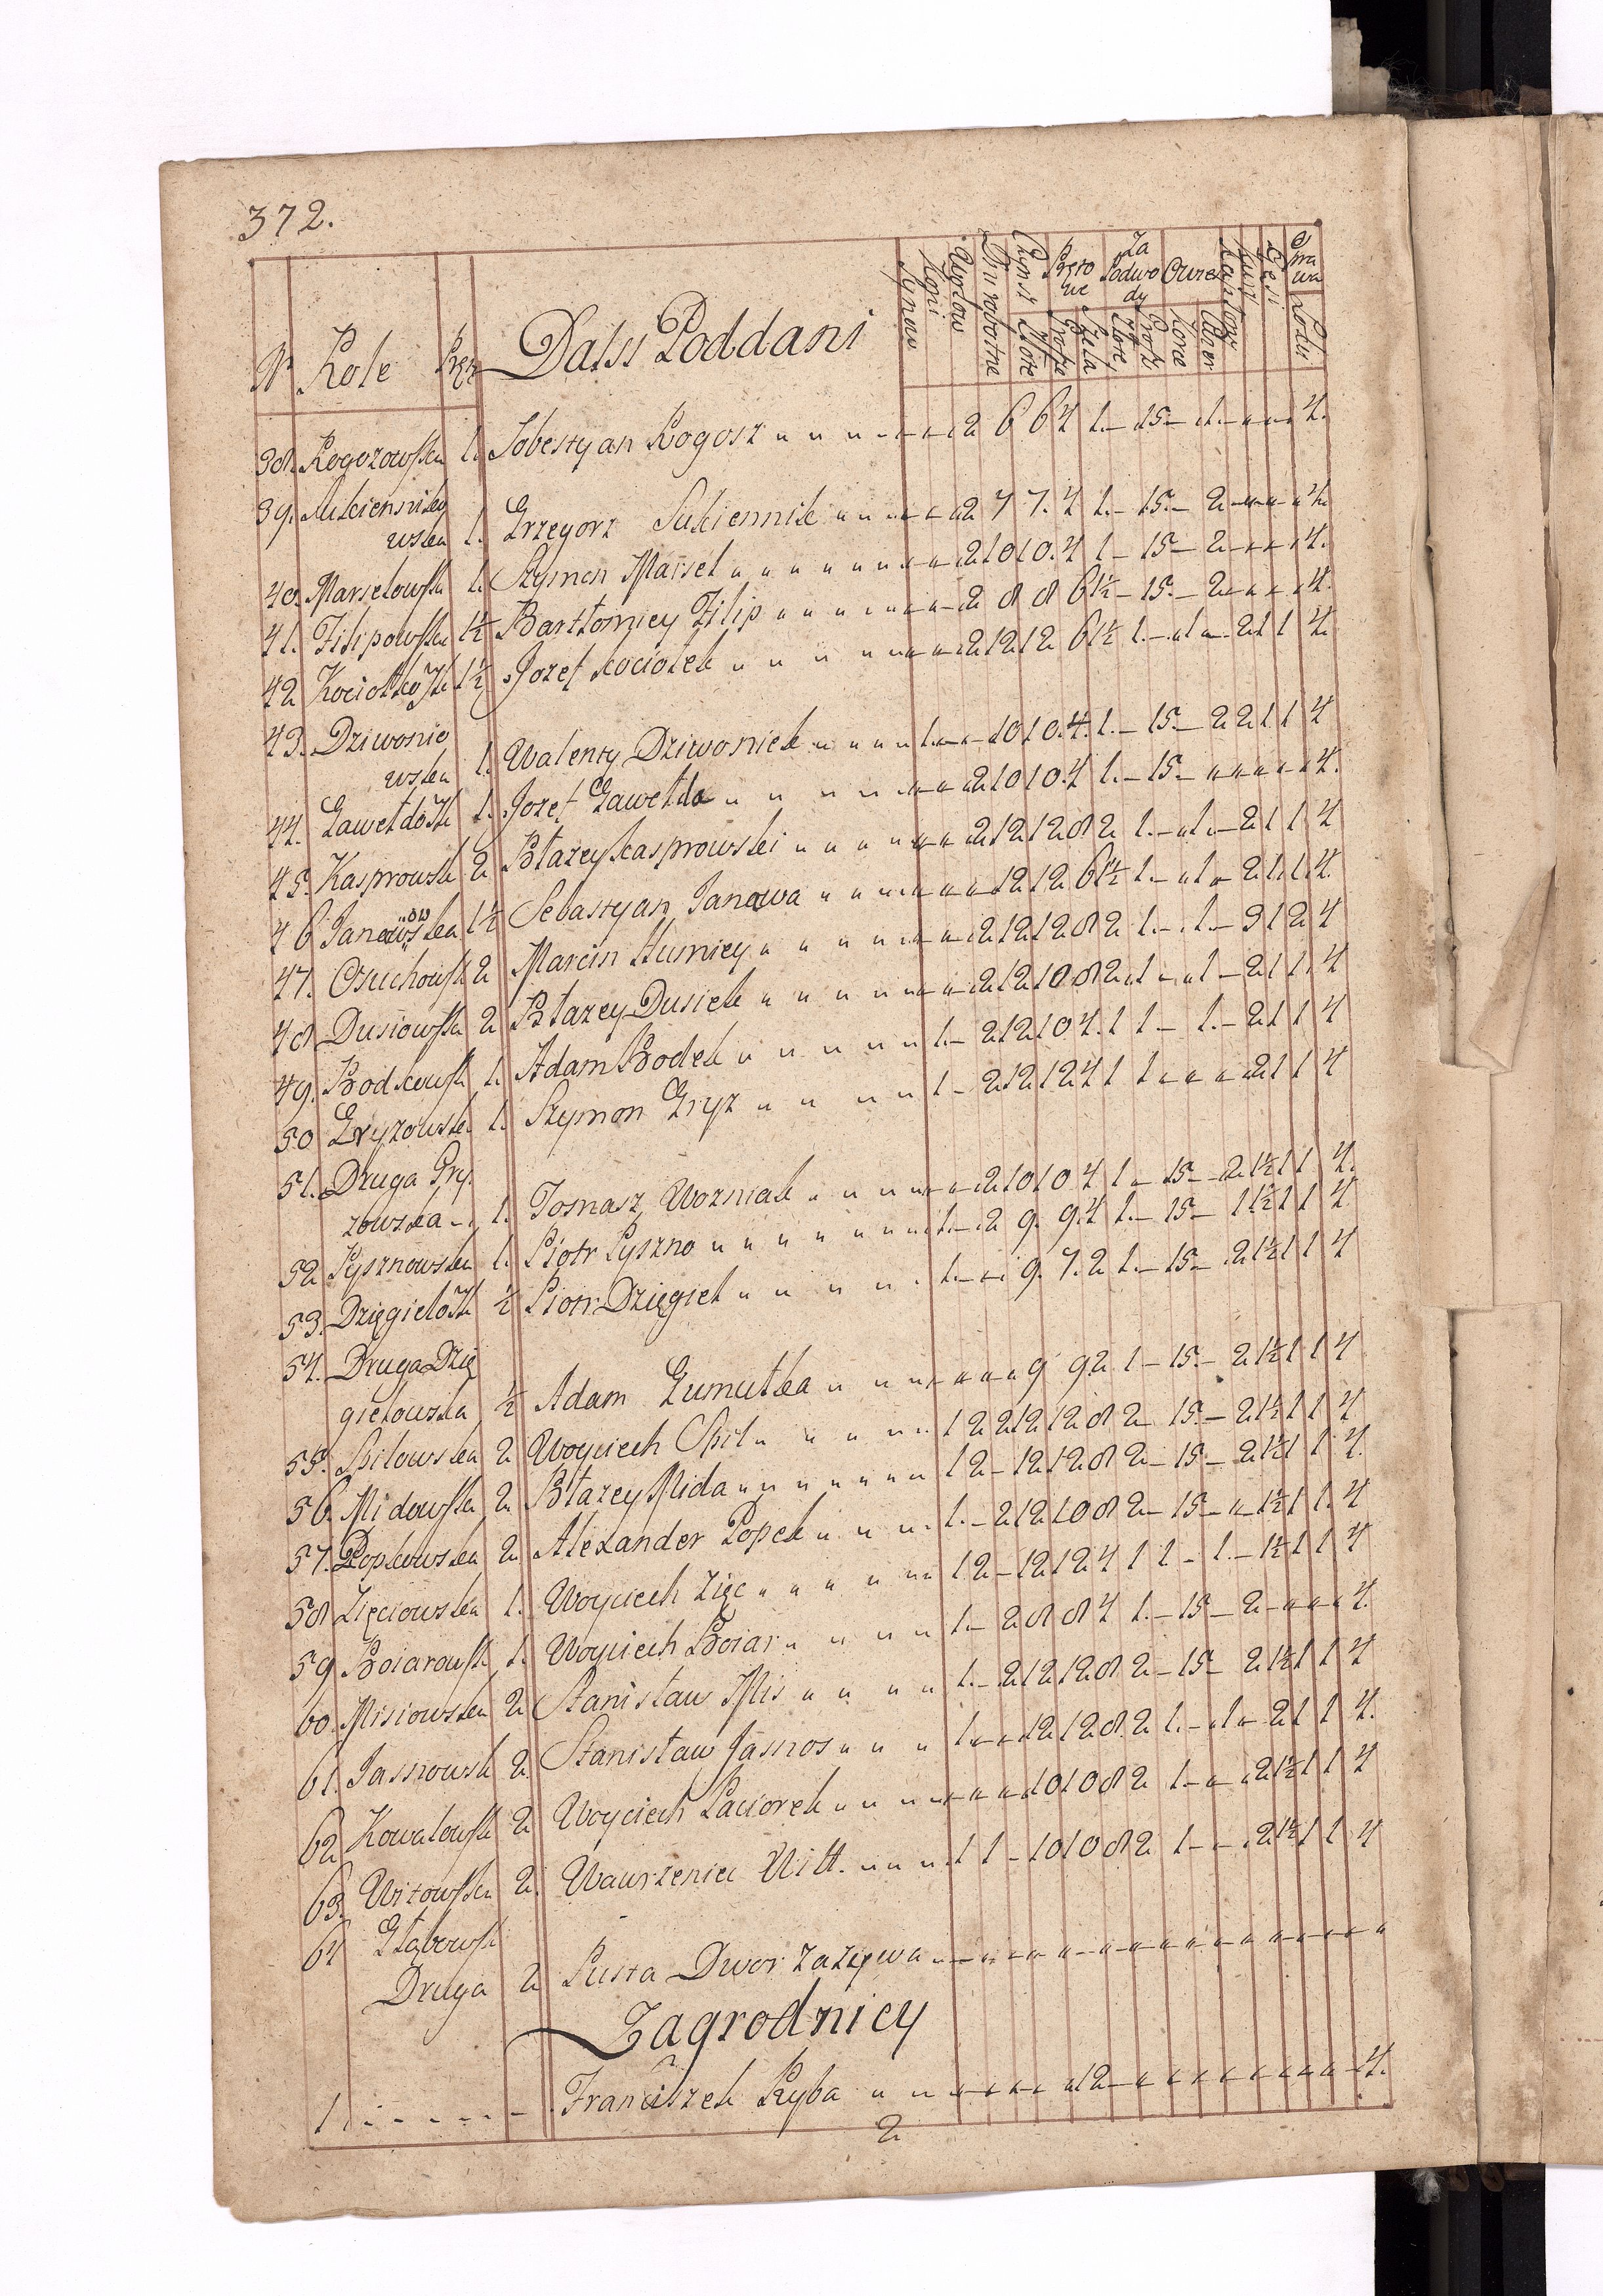 372.
Nr Role Pręt Dalsi Poddani
Synow Koni Wołow Dni robotne Czynsz Złote Prętowe Grosze Za Podwody Złote Grosz Owies Korce Kapłony Kury
38. Rogozowska 1. Sobestyan Rogosz 2 6 6 4 1 15 1 4.
39. Sukienniko
wska 1. Grzegorz Sukiennik 2 7 7. 4 1 15 2 4
40. Marselowska 1. Szymon Marsel 2 10 10. 4 1 15 2 4.
41. Filipowska 1½ Bartłomiey Filip 2 8 8 6 1½ 15 2 4.
42 Kociołkowska 1½ Jozef Kociołek 2 12 12 6 1½ 1 1 2 1 1 4
43. Dziwonio
wska 1. Walenty Dziwoniek 1 10 10. 4. 1. 15 2 2 1 1 4
44. Gawełdowska 1. Jozef Gawełda 2 10 10. 4 1. 15 4.
45. Kasprowska 2 Błazey Kasprowski 2 12 12 8 2 1. 1 2 1 1 4
46 Janowska 1½ Sebastyan Janowa 12 12 6 1½ 1. 1 2 1 1 4.
47. Osuchowska 2 Marcin Humiey 2 12 12 8 2 1. 1. 3 1 2 4
48 Dusiowska 2 Błazey Dusiek 2 12 10 8 2 1 1 2 1 1 4
49. Bodkowska 1. Adam Bodek 1. 2 12 10 4. 1 1 1. 2 1 1 4
50 Gryzowska 1. Szymon Gryz 1 2 12 12 4 1 1 2 1 1 4
51. Druga Gry
zowska 1. Tomasz Wozniak 2 10 10 4 1 15 2 1½ 1 1 4.
52 Pysznowska 1. Piotr Pyszno 1 2 9. 9. 4 1. 15 1 1½ 1 1 4
53. Dzięgielowska ½ Piotr Dzięgiel 1. 9. 7. 2 1. 15 2 1½ 1 1 4
54. Druga Dzię
gielowska ½ Adam Gumułka 9 9 2 1 15. 2 1½ 1 1 4
55. Spilowska 2 Woyciech Spil 1 2 2 12 12 8 2 15. 2 1½ 1 1 4
56. Midowska 2 Błazey Mida 1 2 12 12 8 2 15 2 1½ 1 1 4.
57. Popkowska 2 Alexander Popek 1. 2 12 10 8 2 15 1½ 1 1. 4
58 Zięciowska 1. Woyciech Zięc 1 2 12 12 4 1 1 1. 1½ 1 1 4
59 Boiarowska 1. Woyciech Boiar 1 2 8 8 4 1. 15 2 4.
60. Misiowska 2 Stanisław Mis 1. 2 12 12 8 2 15 2 1½ 1 1 4
61. Jasnowska 2. Stanisław Jasnos 1 12 12 8. 2 1. 1 2 1 1 4.
62 Kowalowska 2 Woyciech Paciorek 10 10 8 2 1 2 1½ 1 1 4
63. Witowska 2. Wawrzeniec Witt. 1 1 10 10 8 2 1 2 1½ 1 1 4
64 Głąbowska
Druga 2 Pusta Dwor zazywa
Zagrodnicy
1 Franciszek Ryba 12 4.
2